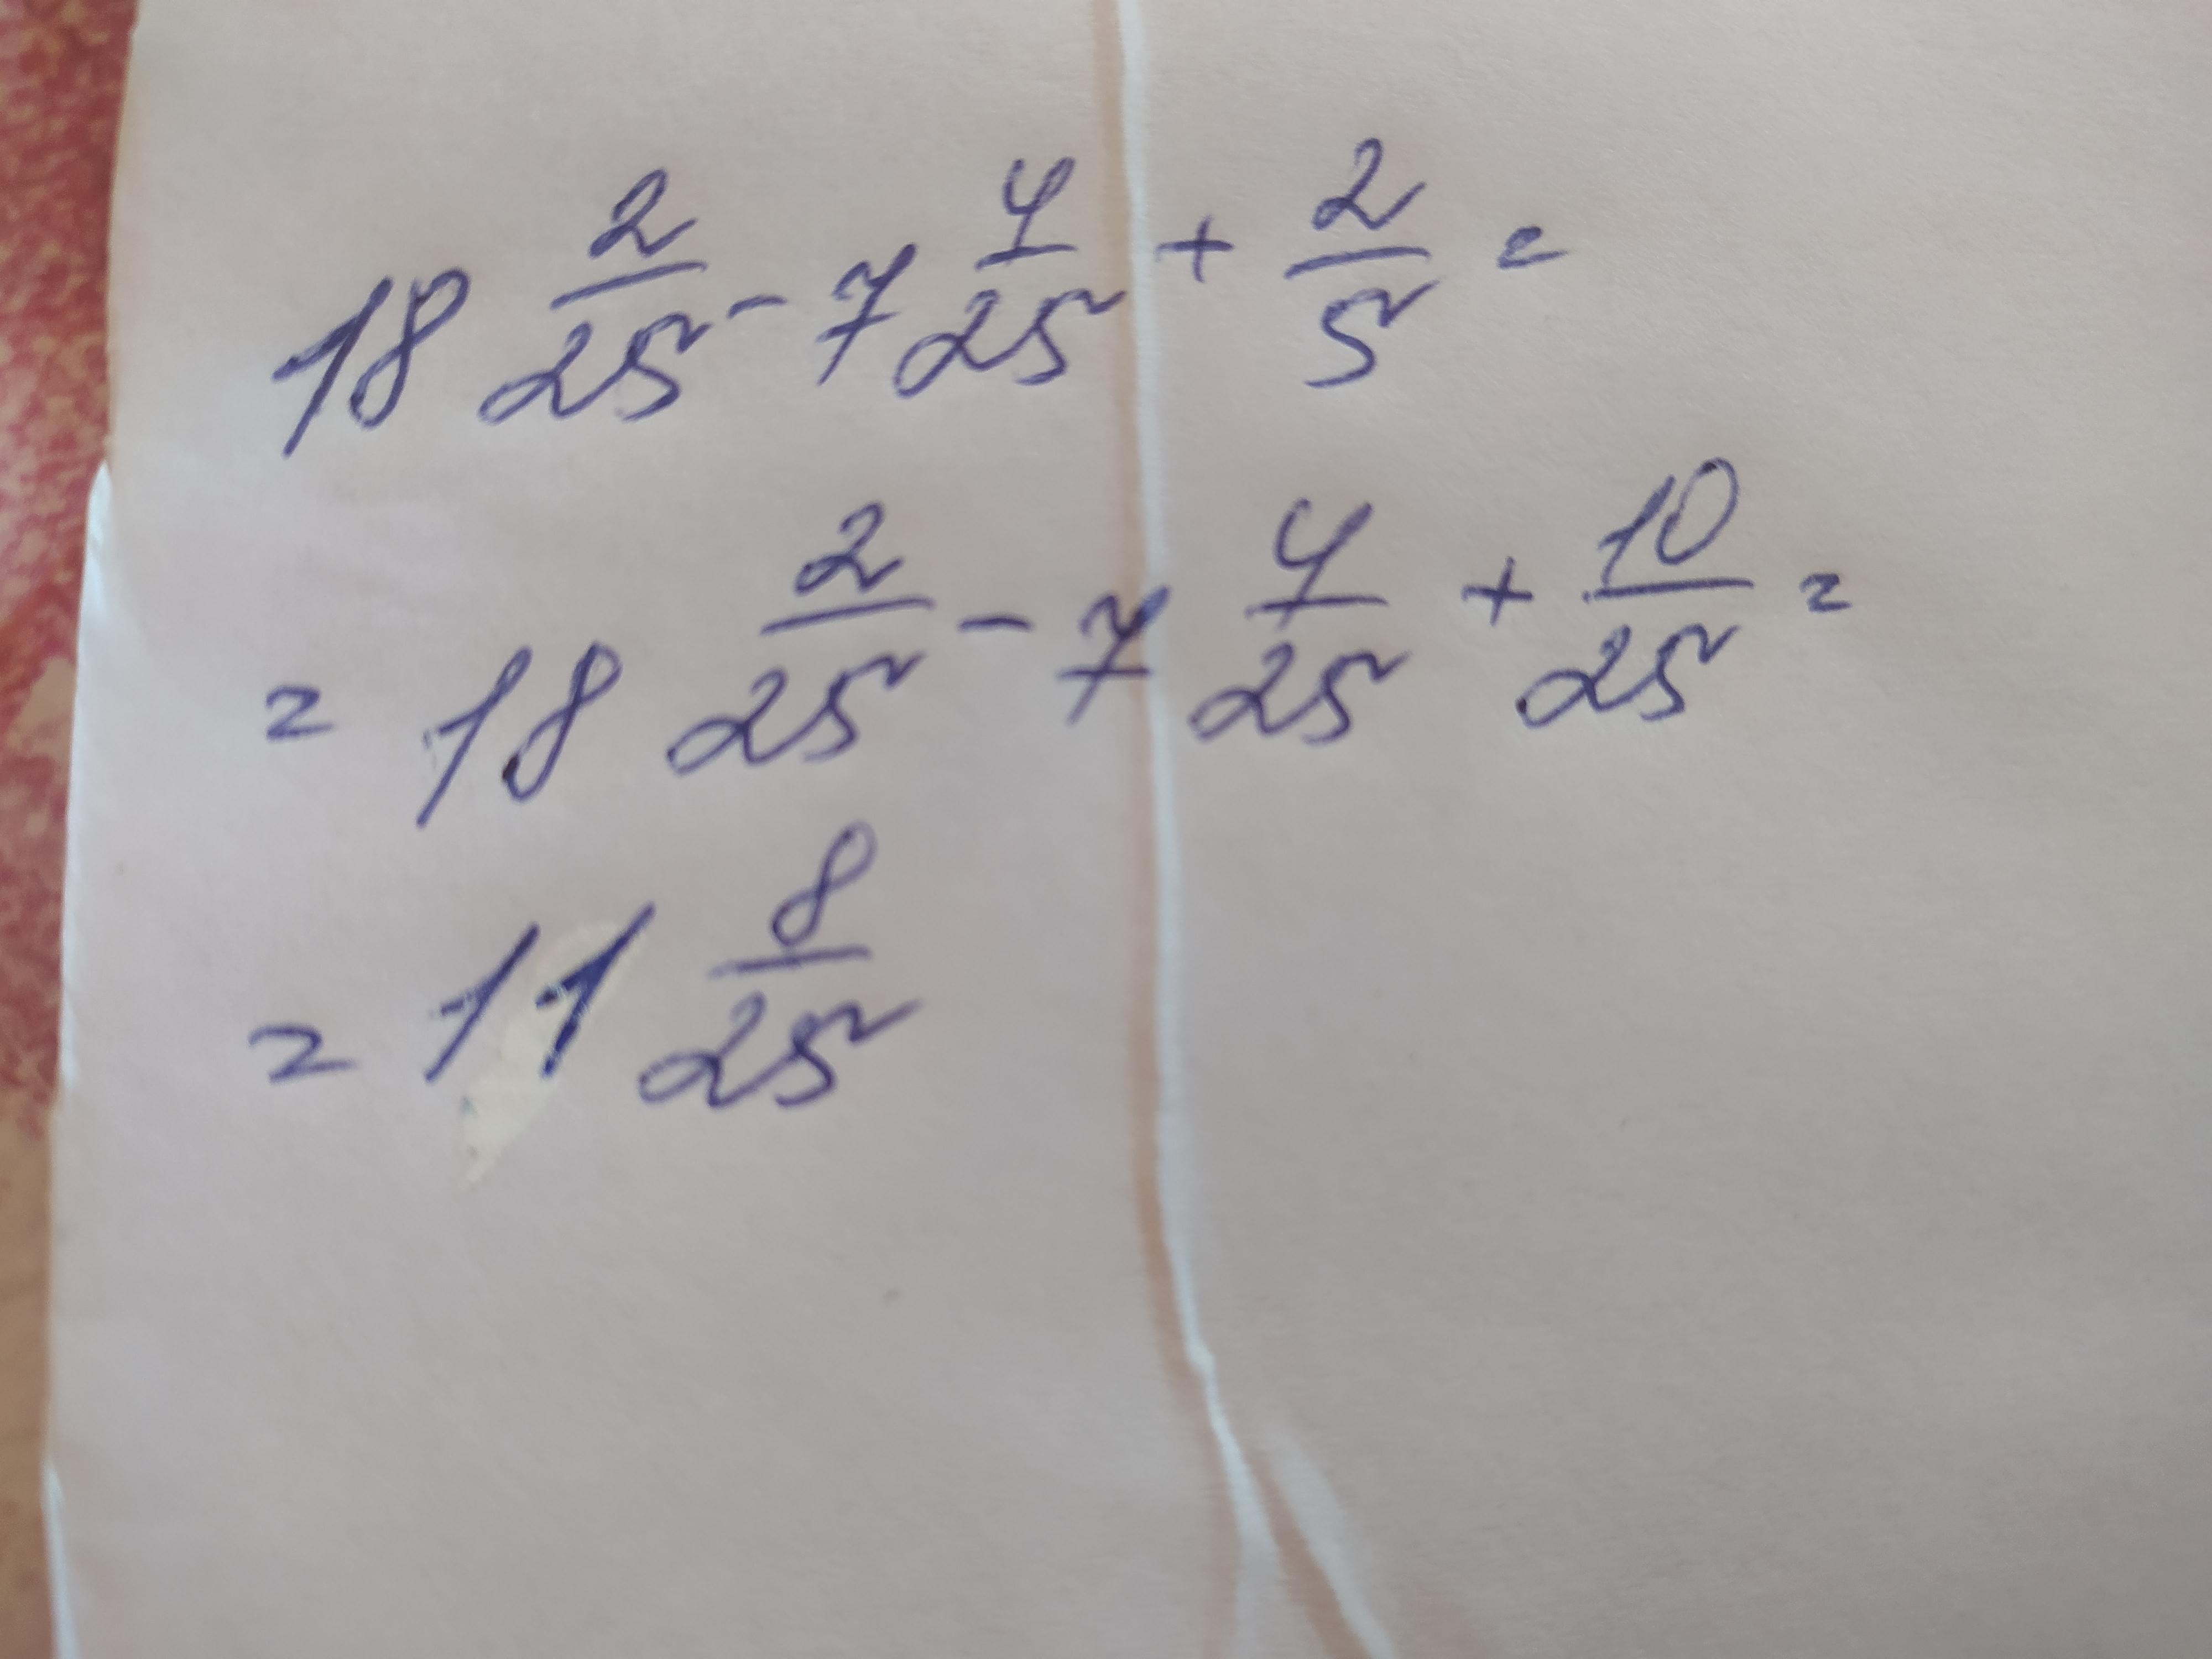 18 2/25 - 7 4/25 + 2/5 =
= 18 2/25 - 7 4/25 + 10/25 =
= 11 8/25